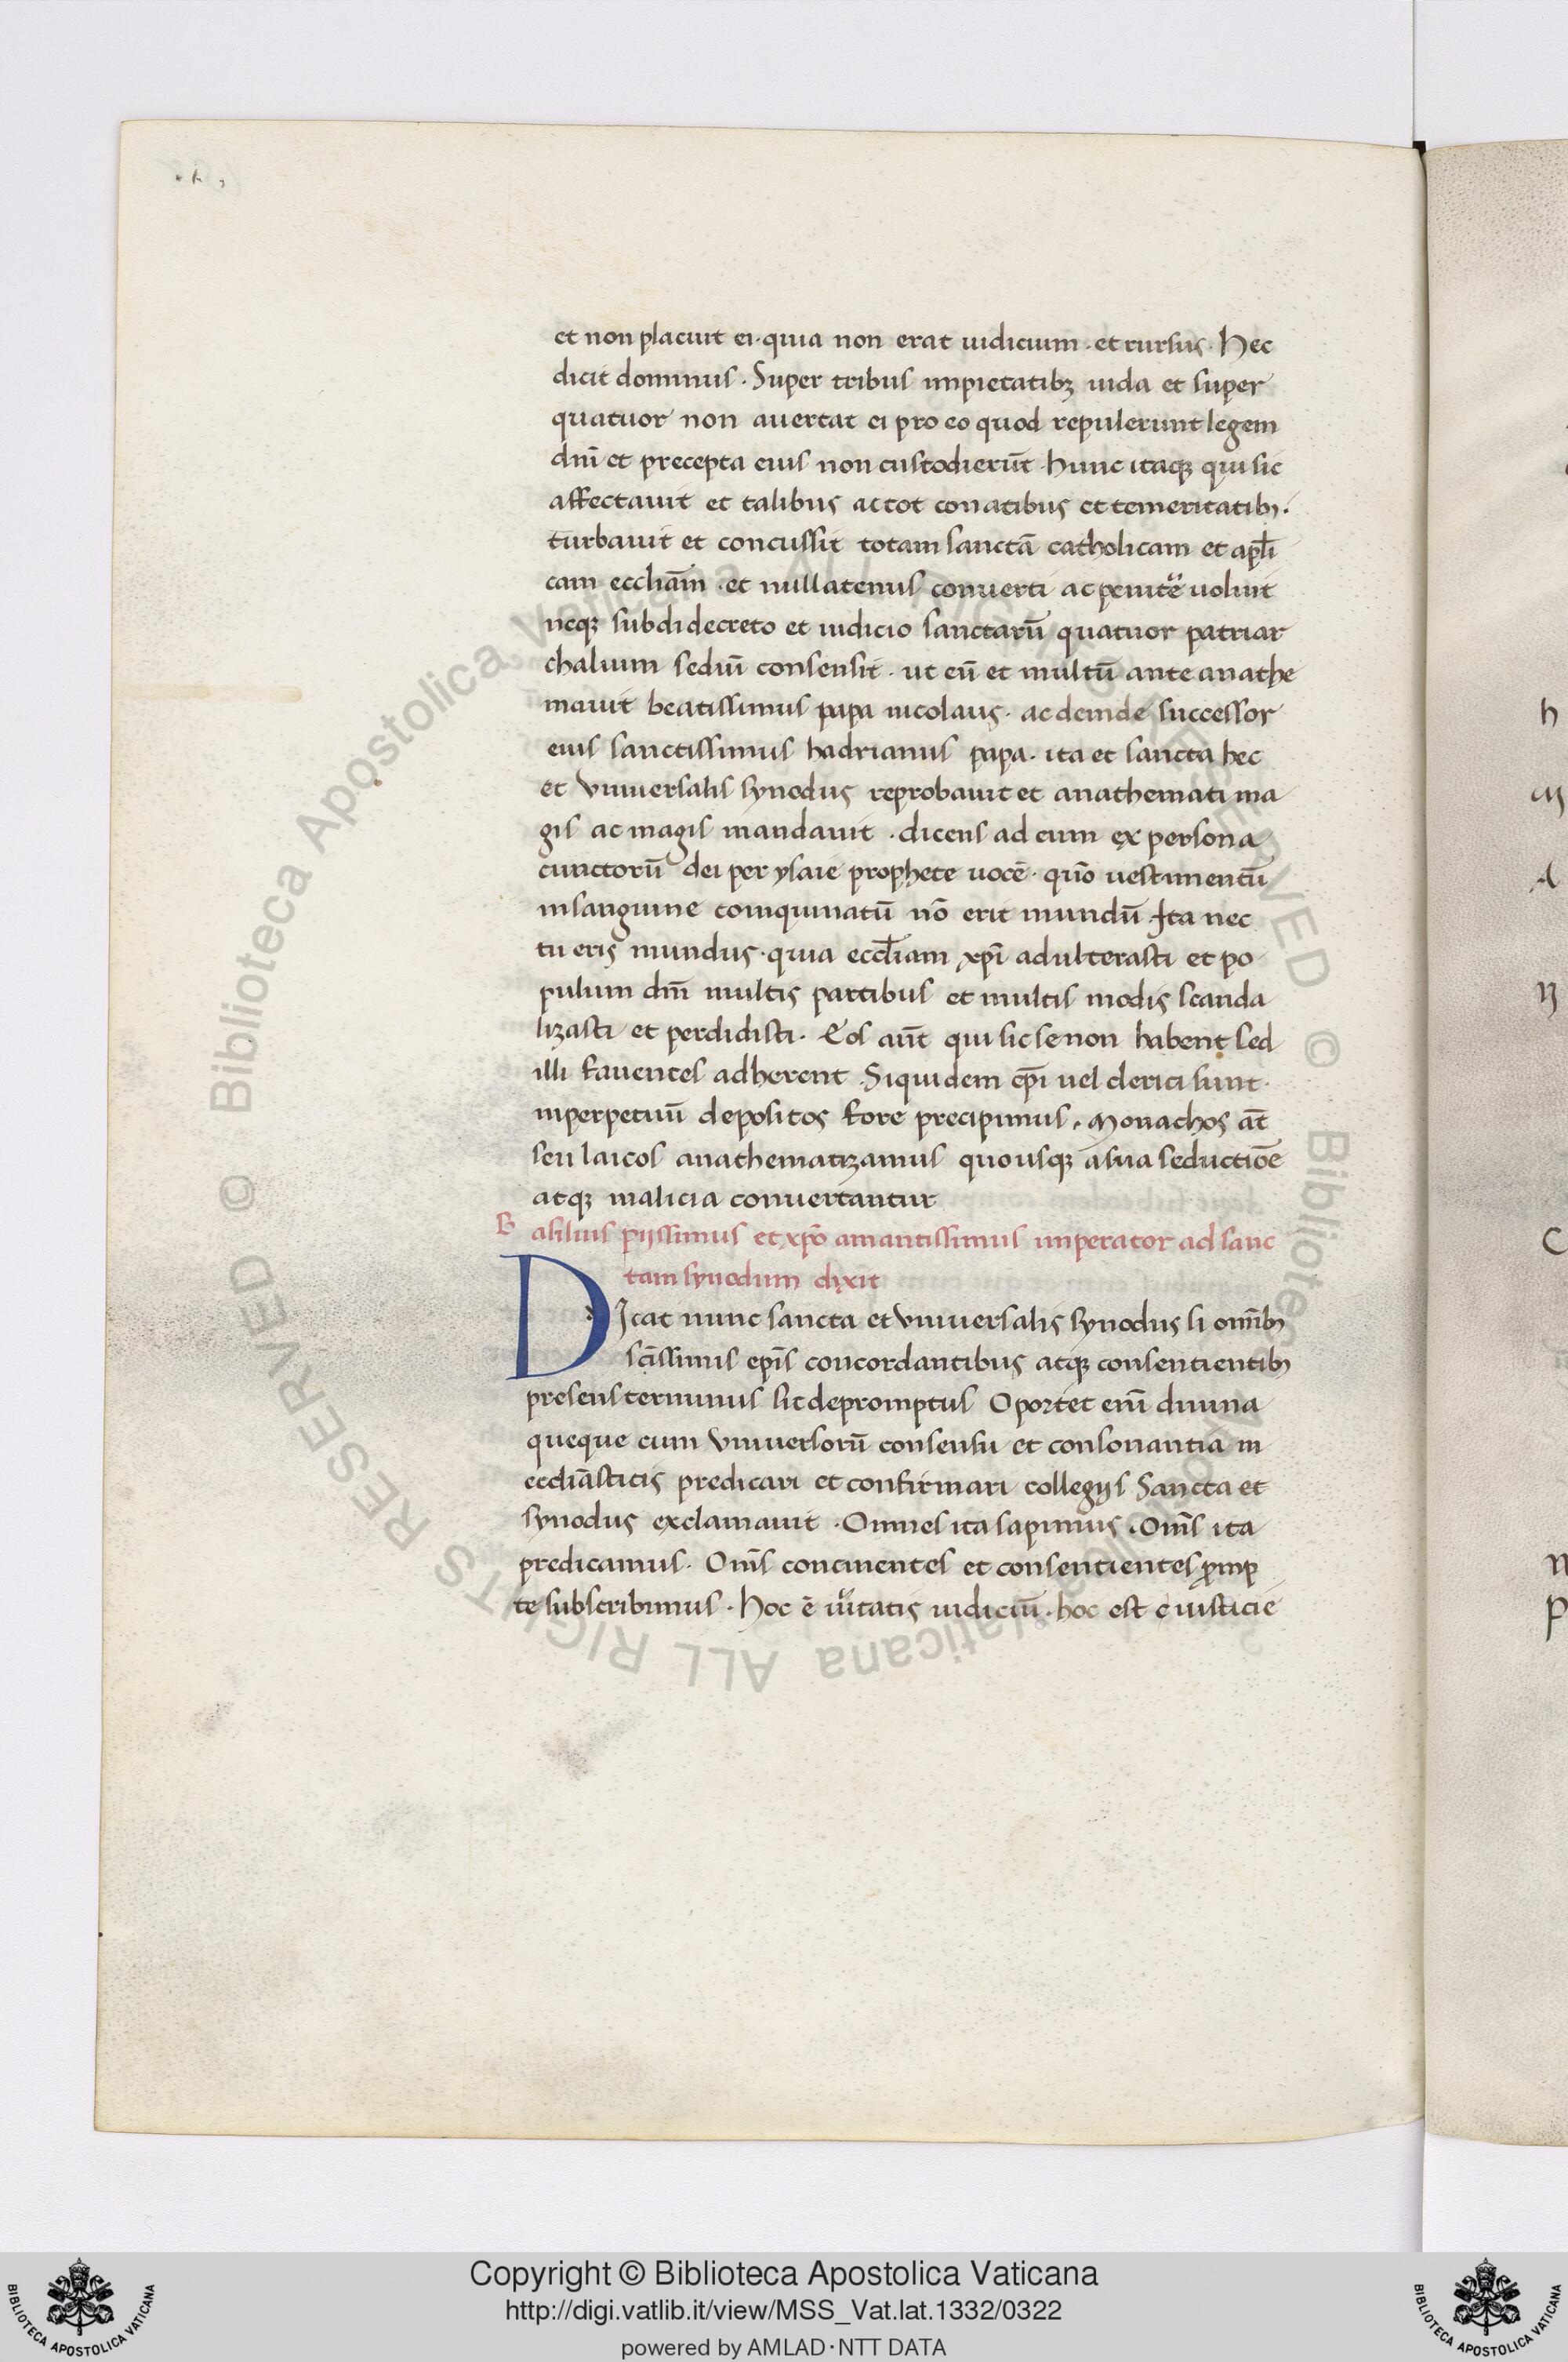 et non placuit ei · quia non erat iudicium · et rursus · Hec
dicit dominus · Super tribus impietatibꝫ iuda et super
quatuor non auertat ei pro eo quod repulerunt legem
dn̄i et precepta eius non custodierūt · hunc itaqꝫ qui sic
affectauit et talibus ac tot conatibus et temeritatibꝫ ·
turbauit et concussit totam sanctā catholicam et apl̄i
cam eccliām · et nullatenus conuerti ac penitē uoluit
neqꝫ subdi decreto et iudicio sanctarū quatuor patriar
chalium sediū consensit · ut eū et multū ante anathe
mauit beatissimus papa nicolaus · ac deinde successor
eius sanctissimus hadrianus papa · ita et sancta hec
et vniuersalis synodus reprobauit et anathemati ma
gis ac magis mandauit · dicens ad eum ex persona
cunctorū dei per ysaie prophete uocē · quō uestimentū
in sanguine coinquinatū nō erit mundū Ita nec
tu eris mundus · quia eccl̄iam xp̄i adulterasti et po
pulum dn̄i multis partibus et multis modis scanda
lizasti et perdidisti · Eos aūt qui sic se non habent sed
illi fauentes adherent · Siquidem ep̄i uel clerici sunt ·
in perpetuū depositos fore precipimus · Monachos āt
seu laicos anathematizamus quousqꝫ a sua seductiōe
atqꝫ malicia conuertantur
Basilius pijssimus et xp̄o amantissimus imperator ad sanc
tam synodum dixit
DIcat nunc sancta et vniuersalis synodus si om̄ibꝫ
sc̄issimis ep̄is concordantibus atqꝫ consentientibꝫ
presens terminus sit depromptus Oportet enī diuina
queque cum vniuersorū consensu et consonantia in
eccliāsticis predicari et confirmari collegijs Sancta et
synodus exclamauit · Omnes ita sapimus · Om̄s ita
predicamus · Om̄s concinentes et consentientes ꝓmp
te subscribimus · Hoc ē ūitatis iudiciū · hoc est e iusticie
© Biblioteca Apostolica Vaticana ALL RIGHTS RESERVED © Biblioteca Apostolica Vaticana ALL RIGHTS RESERVED
Copyright © Biblioteca Apostolica Vaticana
http://digi.vatlib.it/view/MSS_Vat.lat.1332/0322
powered by AMLAD·NTT DATA
BIBLIOTECA APOSTOLICA VATICANA
BIBLIOTECA APOSTOLICA VATICANA